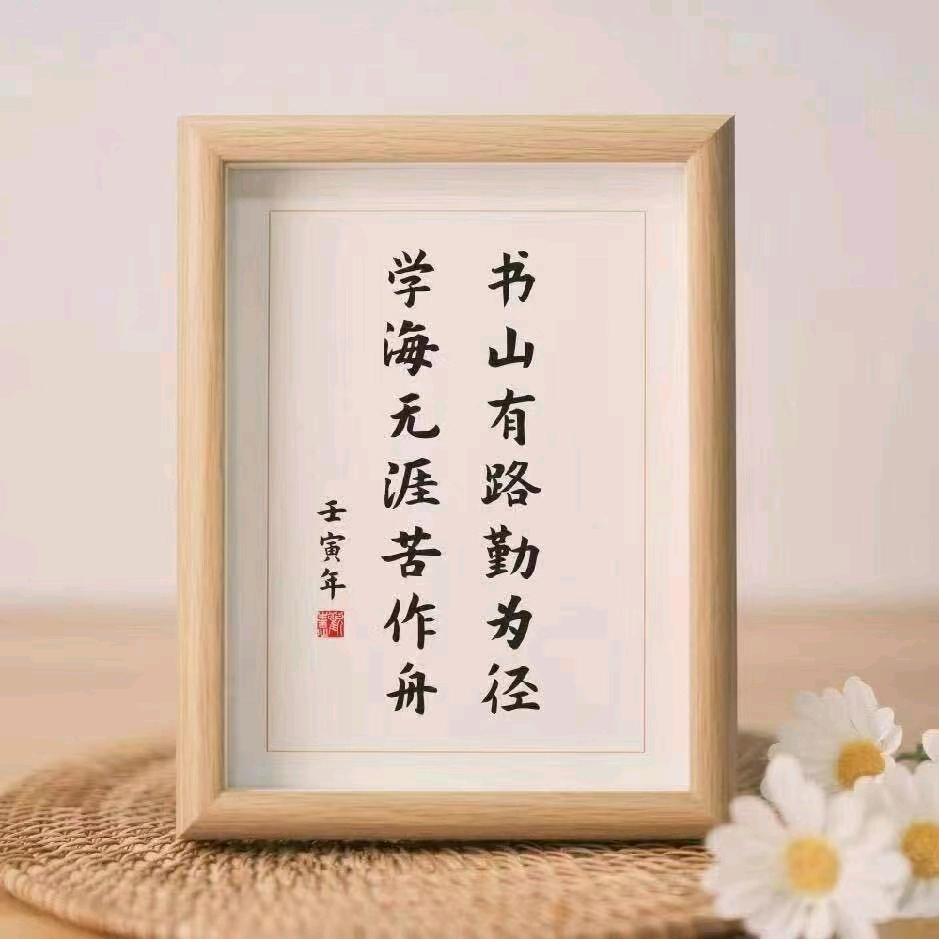 书山有路勤为径
学海无涯苦作舟
壬寅年